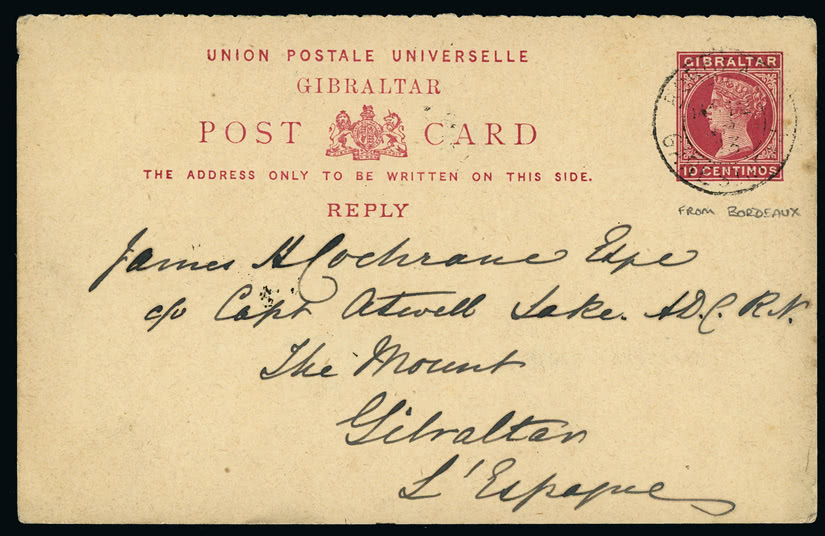 UNION POSTALE UNIVERSELLE
GIBRALTAR
POST CARD
THE ADDRESS ONLY TO BE WRITTEN ON THIS SIDE.
REPLY
GIBRALTAR
10 CENTIMOS
FROM BORDEAUX
James H Cochrane Esqe
c/o Capt Atwell Lake. A.D.C. R.N.
The Mount
Gibraltar
L'Espagne